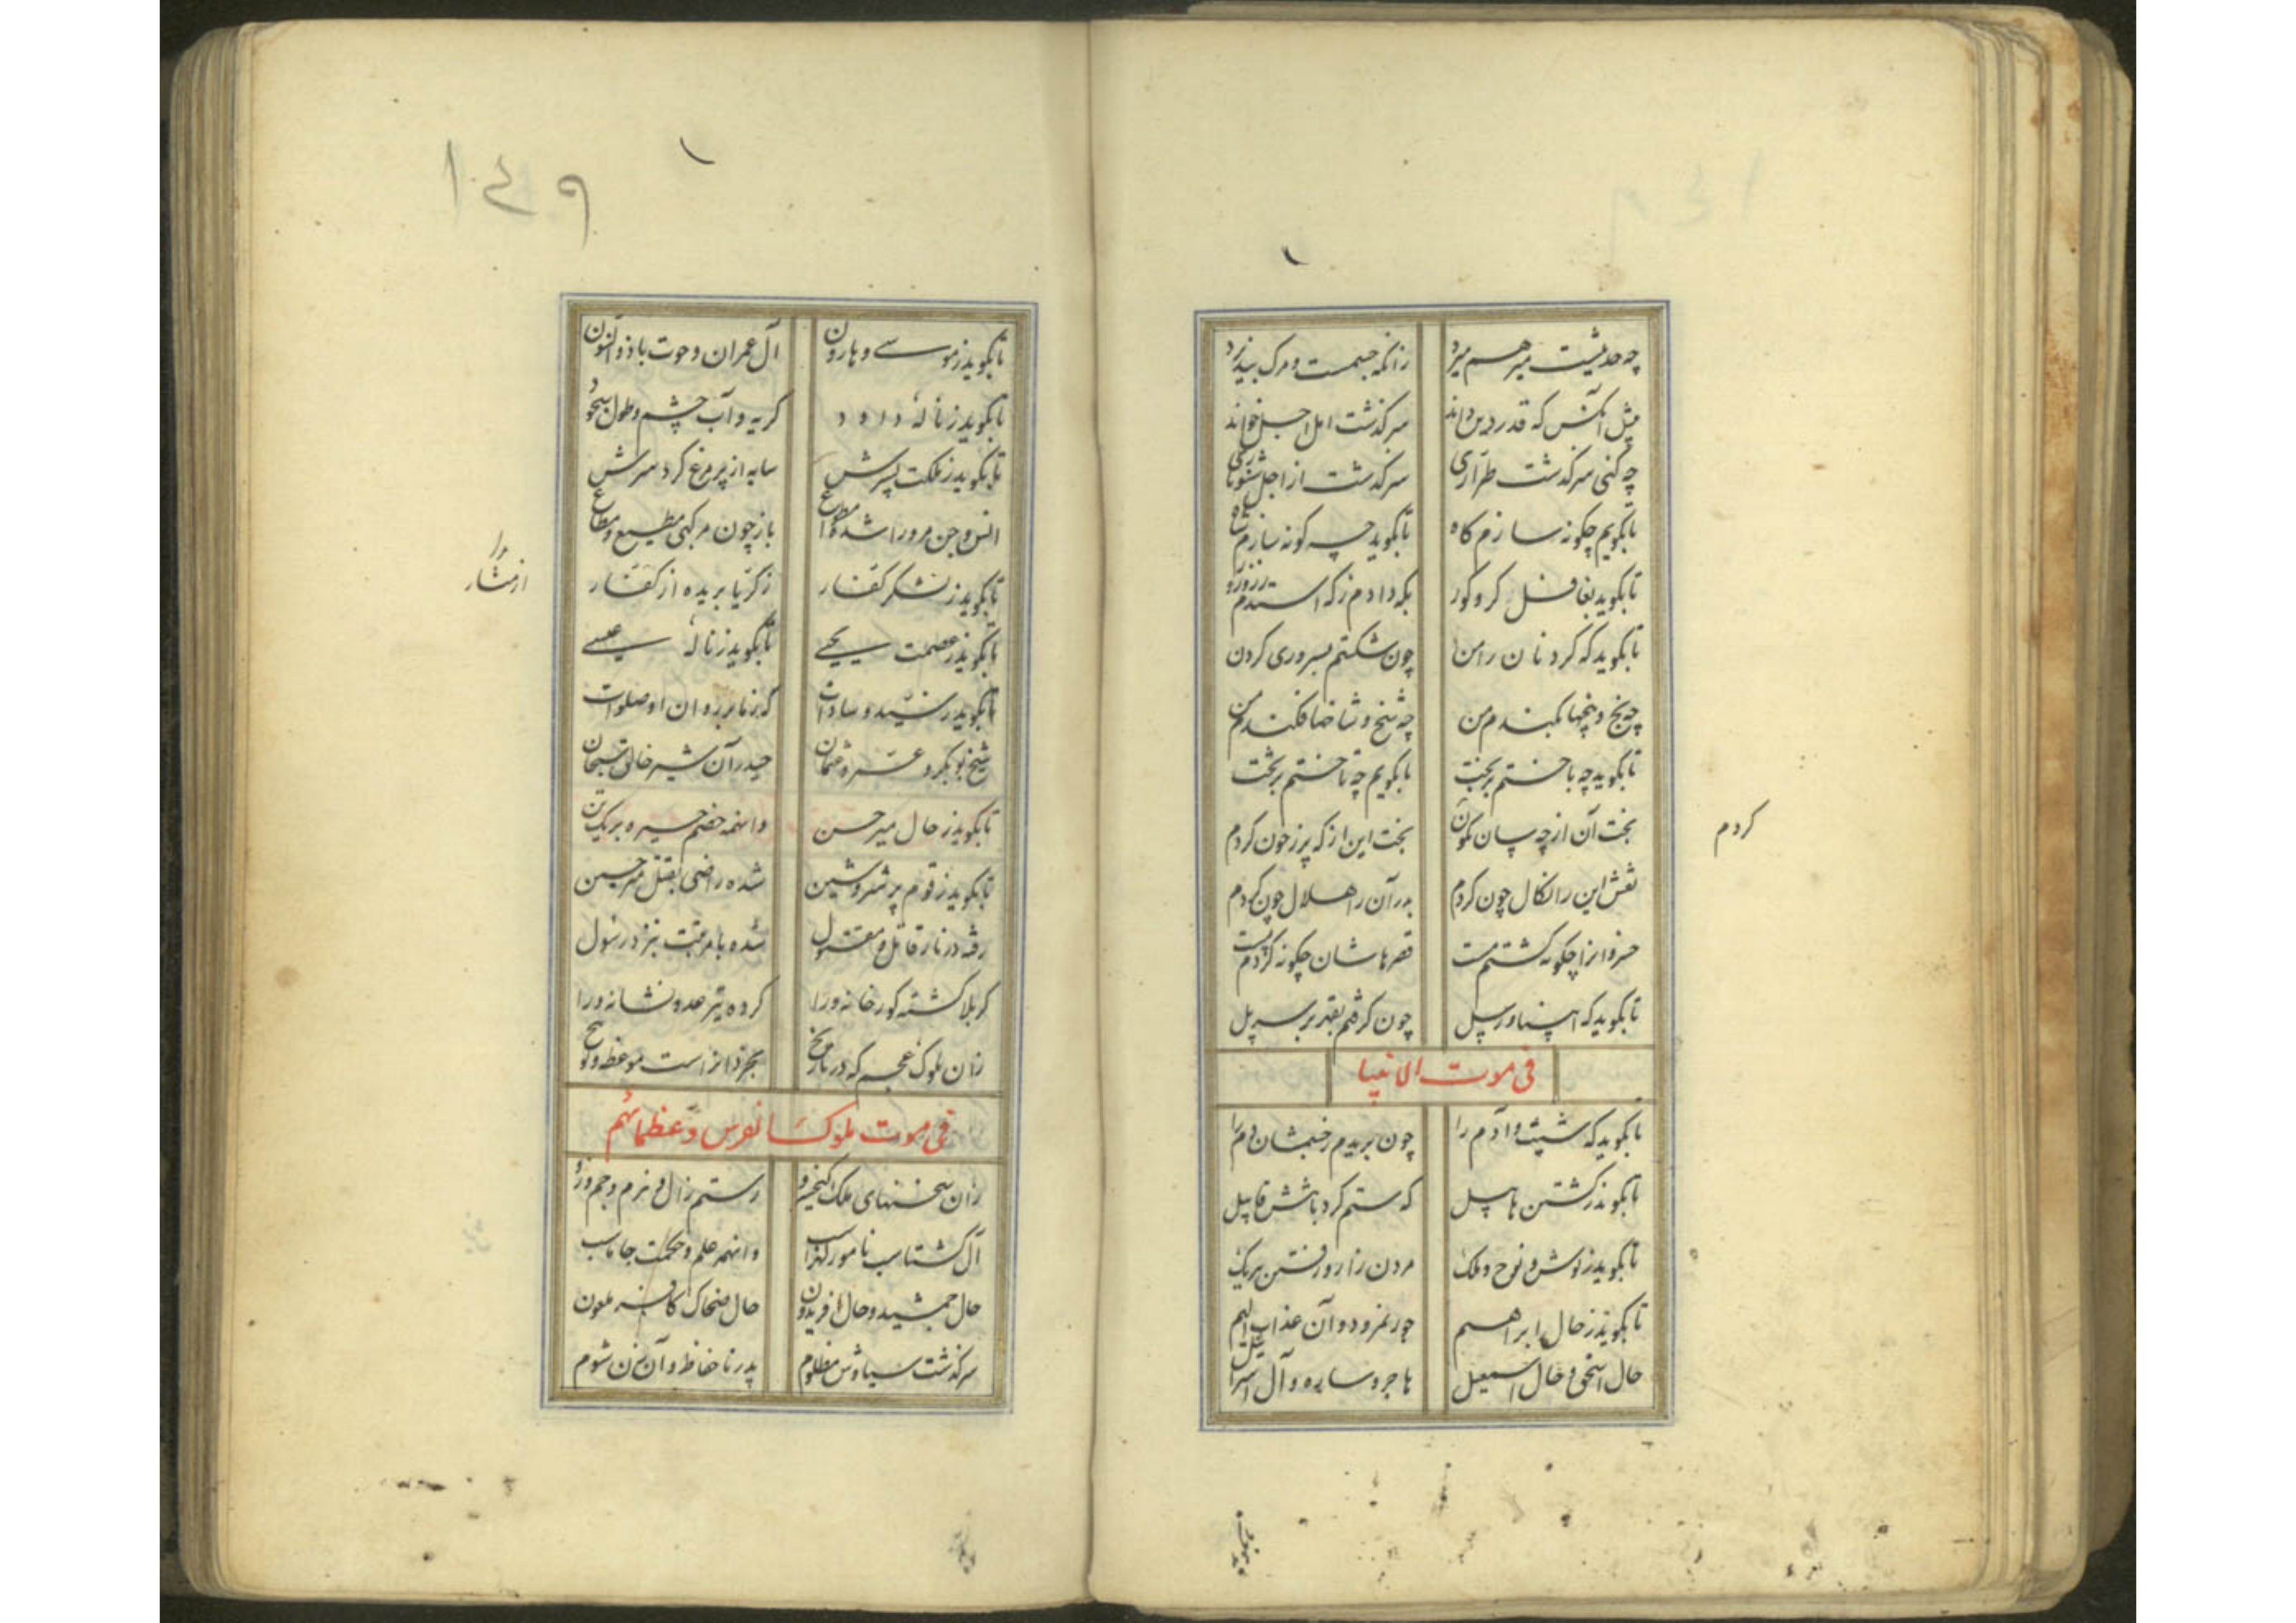 چه حدیثیست میر هم میرد زانکه جسمست و مرگ بپذیرد
مثل آنکس که قدر دین داند سرگذشت امل اجل خواند
چه کنی سرگذشت طراری سرگذشت از اجل شنو باری
تا بگویم چگونه سازم گاه تا بگوید چه گونه سازم شاه
تا بگوید بغافل کر و کور بکه دادم زکه استدم زر و زور
تا بگوید که گردنان را من چون شکستم بسروری گردن
چه بیخ و بیخها بکندم من چه شخ و شاخها فکندم من
تا بگوید چه باختم بر بخت تا بگویم چه تاختم بر تخت
بخت آن از چه سان نگون بخت این از که پر ز خون کردم
نقش این را نکال چون کردم بدر آن را هلال چون کردم
خسروانرا چگونه گشتم مست قصرهاشان چگونه کردم پست
تا بگوید که اسپ و پیل چون گرفتم بقهر بر سر پل
فی موت الانبیا
تا بگوید که شیث و آدم را چون بریدم ز خشمشان دم را
تا بگوید ز کشتن هابیل که ستم کرد باشش قابیل
تا بگوید ز نوش و نوح و ملک مردن زار و رفتن هریک
تا بگوید ز حال ابراهیم جور نمرود و آن عذاب الیم
حال اسحق و حال اسمعیل هاجر و ساره و آل اسرائیل
کردم
۱۴۹
تا بگوید ز موسی و هارون آل عمران و حوت با ذوالنون
تا بگوید ز نالهٔ داود گریه و آب چشم و طول سجود
تا بگوید ز ملکت پسرش سایه از پر مرغ کرد سرش
انس و جن مرورا شده اتباع باز چون مرگ بی مطیع و مطاع
تا بگوید ز لشکر کفار زکریا بریده از کفار
از منشار
تا بگوید ز عصمت یحیی تا بگوید ز نالهٔ عیسی
تا بگوید ز سید و سادات که ز ما بر روان او صلوات
شیخ بوبکر و عمر و عثمان حیدر آن شیر خالق سبحان
تا بگوید ز حال میر حسن وانهمه خصم خیره بر یک تن
تا بگوید ز قوم پر شر و شین شده راضی بقتل میر حسین
رفته در نار قاتل و مقتول شده با مرتبت بنزد رسول
کربلا گشته گورخانه ورا کرده تیر عدو نشانه ورا
زان ملوک عجم که در تاریخ بخردانراست موعظه و توبیخ
فی موت ملوک الفرس و عظمائهم
زان سخنهای ملک کیخسرو رستم زال و نیرم و جم و زو
آل گشتاسب نامور لهراسب وانهمه علم و حکمت جاماسب
حال جمشید و حال افریدون حال ضحاک کافر ملعون
سرگذشت سیاوش مظلوم پدر ناحفاظ و آن زن شوم